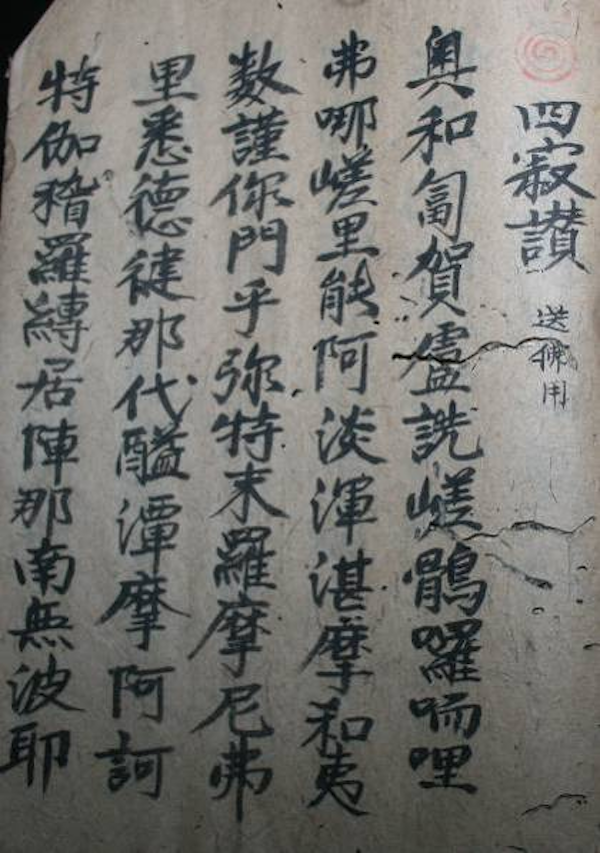 四寂讃 送佛用
奥和匐賀盧詵嵯鶻囉喃哩
弗哪嵯里能阿淡渾湛摩和夷
数謹你門乎弥特末羅摩尼弗
里悉德健那代醯潭摩阿訶
特伽稽羅縳居陣那南無波耶